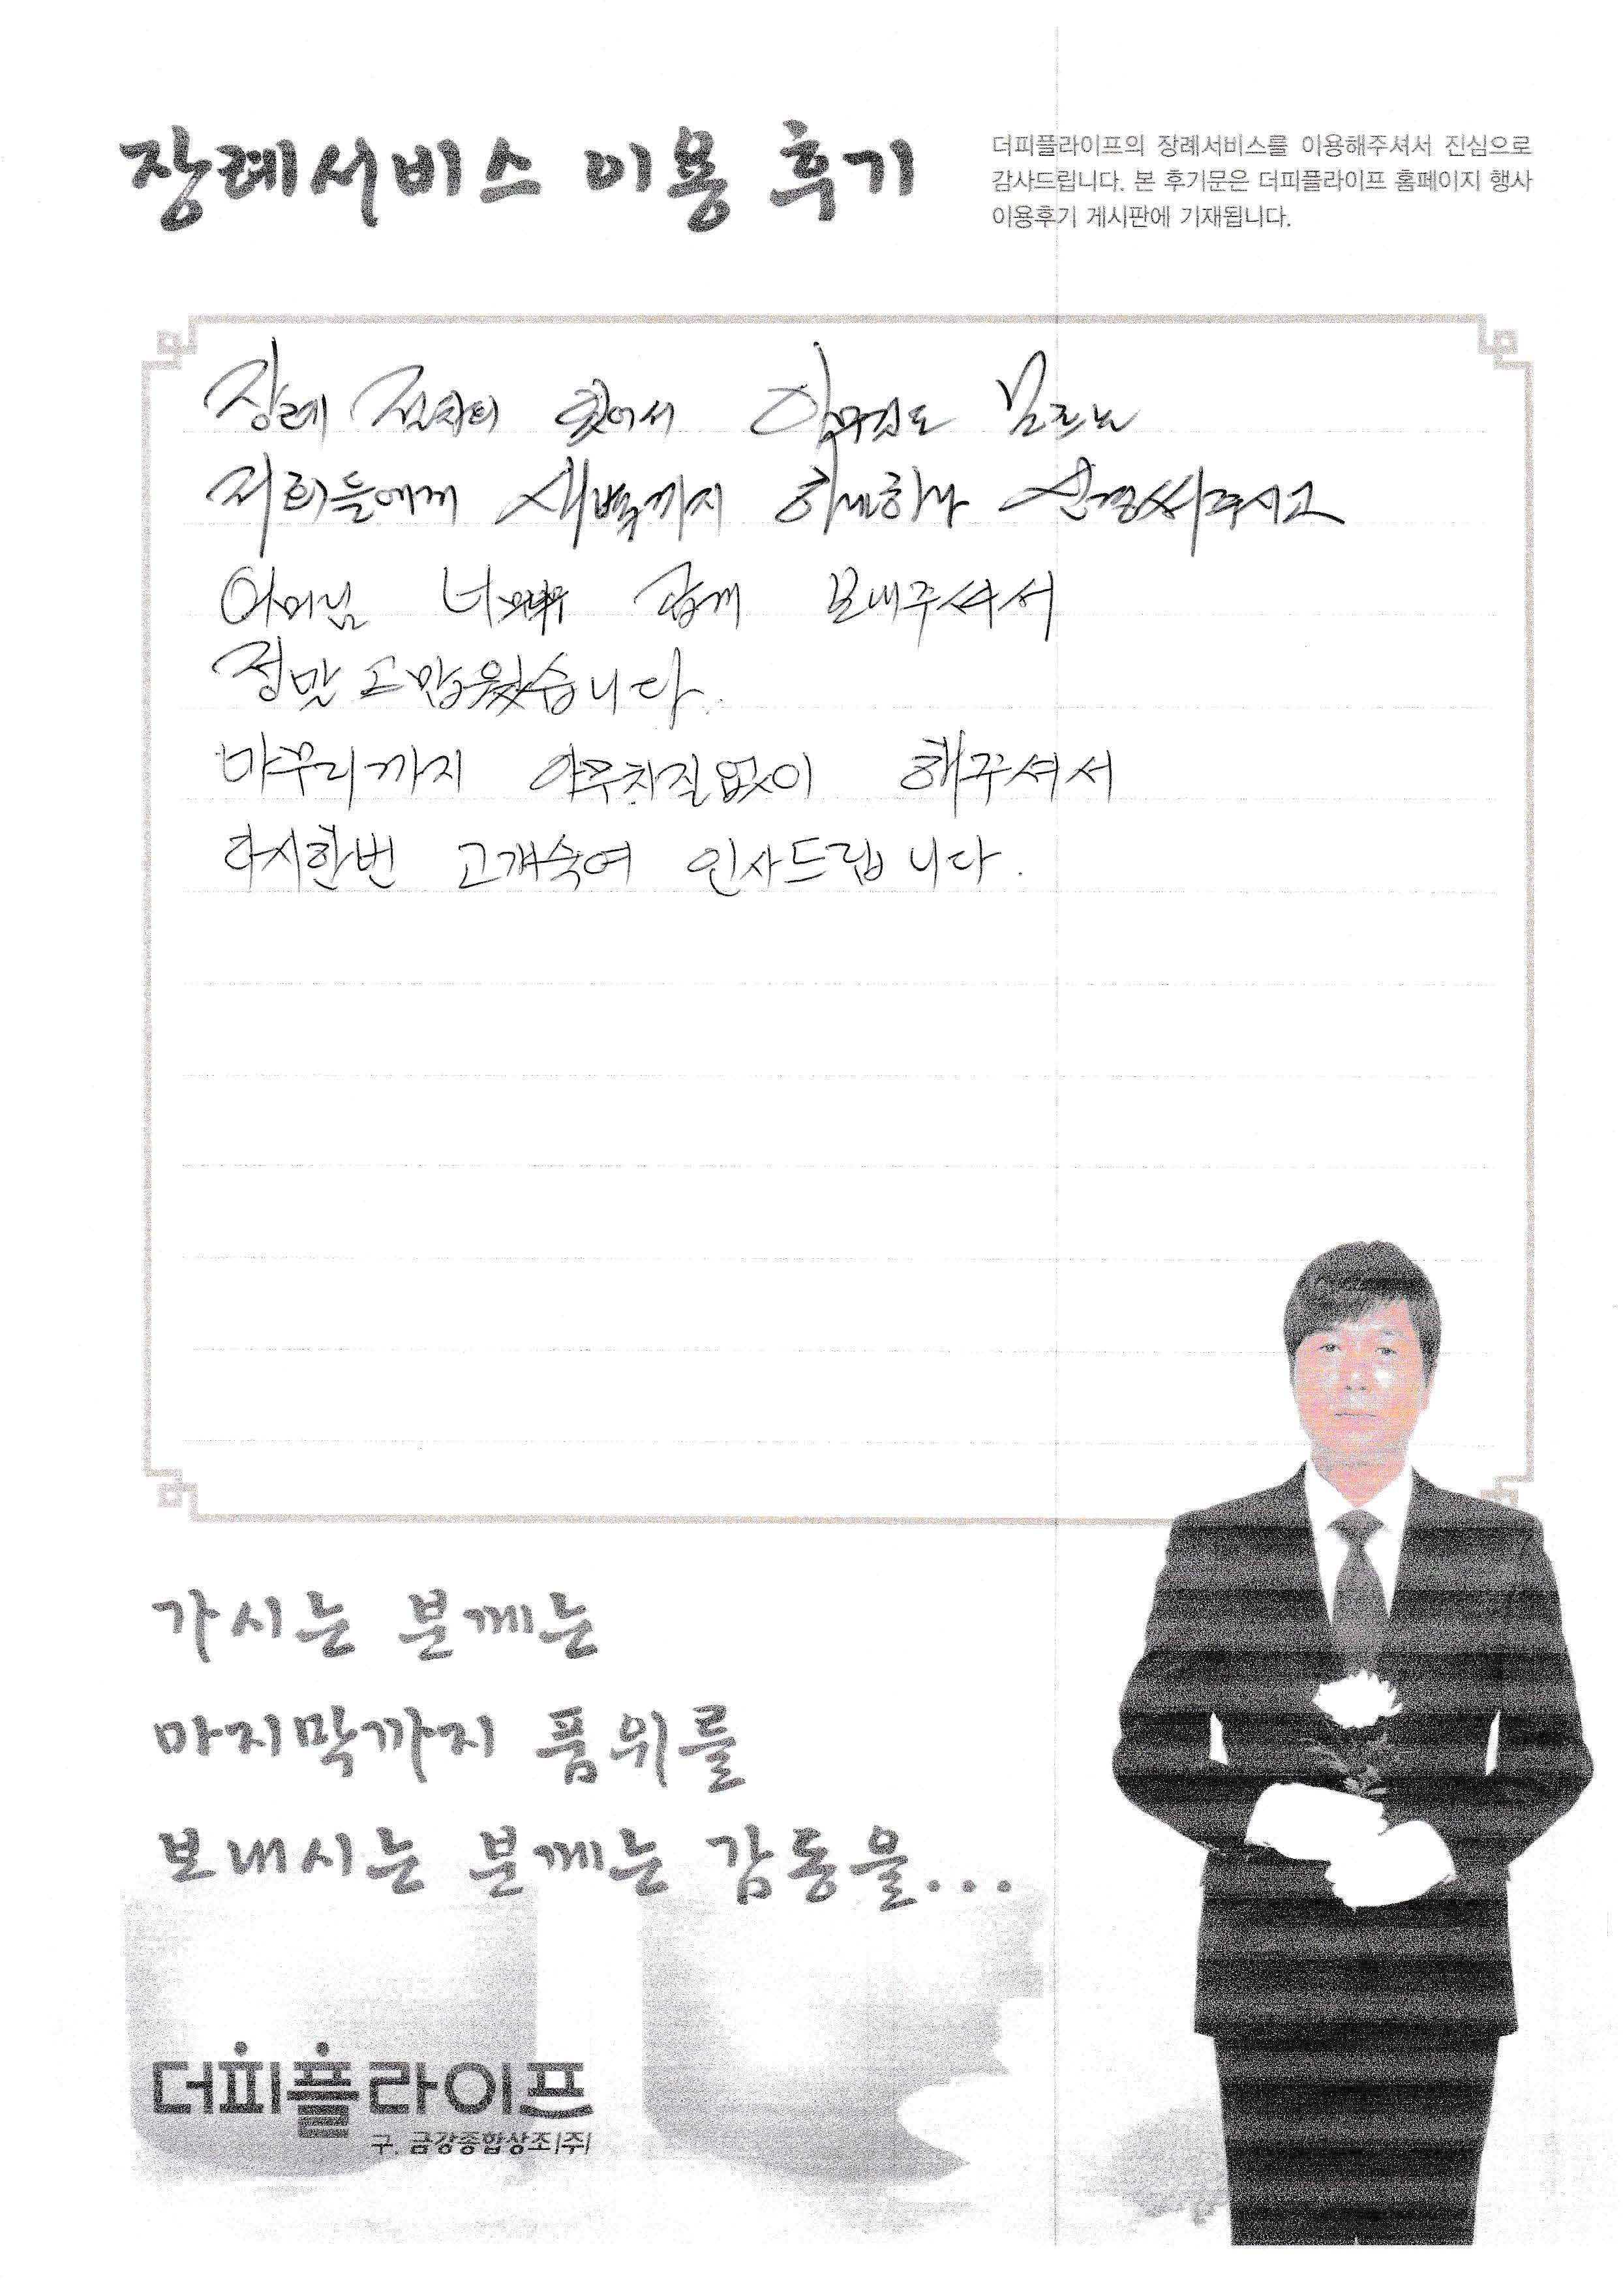 장례서비스 이용 후기
더피플라이프의 장례서비스를 이용해주셔서 진심으로
감사드립니다. 본 후기문은 더피플라이프 홈페이지 행사
이용후기 게시판에 기재됩니다.
장례 절차에 있어서 아무것도 모르는
저희들에게 새벽까지 하나하나 신경써주시고
어머님 너무 곱게 보내주셔서
정말 고맙웠습니다.
마무리까지 아무차질없이 해주셔서
다시한번 고개숙여 인사드립니다.
가시는 분께는
마지막까지 품위를
보내시는 분께는 감동을...
더피플라이프
구. 금강종합상조(주)